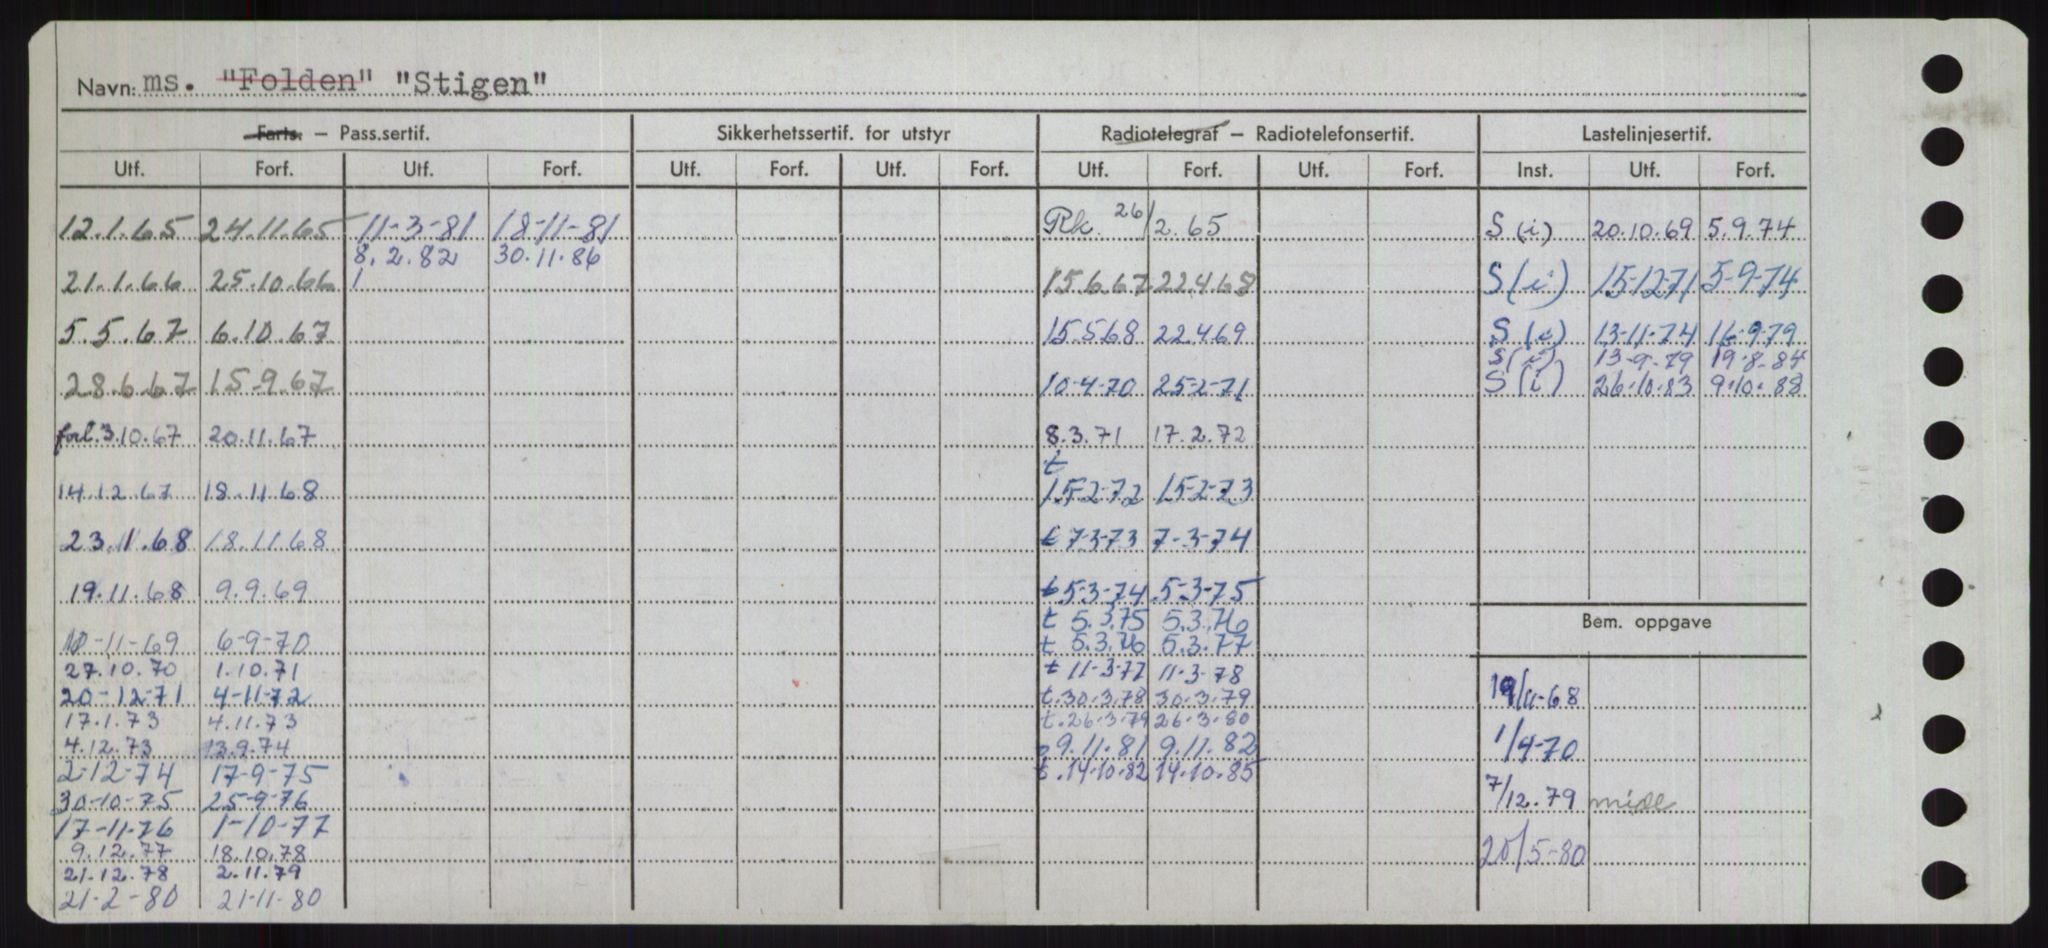 Navn: ms. "Folden" "Stigen"
Farts. – Pass.sertif. Sikkerhetssertif. for utstyr Radiotelegraf – Radiotelefonsertif. Lastelinjesertif.
Utf. Forf. Utf. Forf. Utf. Forf. Utf. Forf. Utf. Forf. Utf. Forf. Inst. Utf. Forf.
12.1.65 24.11.65 11-3-81 18-11-81 Rk. 26/2.65 S (i) 20.10.69 5.9.74
8.2.82 30.11.86
21.1.66 25.10.66 15.6.67 22.4.68 S (i) 15-12-71 5-9-74
5.5.67 6.10.67 15.5.68 22.4.69 S (i) 13-11-74 16-9-79
S (i) 13-9-79 19-8-84
28.6.67 15.9.67 10-4-70 25-2-71 S (i) 26-10-83 9-10-88
forl. 3.10.67 20.11.67 8.3.71 17.2.72
14.12.67 18.11.68 t 15-2-72 15-2-73
23.11.68 18.11.68 t 7-3-73 7-3-74
19.11.68 9.9.69 t 5-3-74 5-3-75
t 5.3.75 5.3.76
Bem. oppgave
10-11-69 6-9-70 t 5.3.76 5.3.77
27.10.70 1.10.71 t 11-3-77 11-3-78
20-12-71 4-11-72 t.30.3.78 30.3.79 19/11-68
17.1.73 4.11.73 t.26.3.79 26-3-80
4.12.73 13.9.74 9.11.81 9.11.82 1/4-70
2-12-74 17-9-75 t.14.10.82 14.10.85
30-10-75 25-9-76 7/12.79
17-11-76 1-10-77
9.12.77 18.10.78 20/5-80
21.12.78 2.11.79
21-2-80 21-11-80